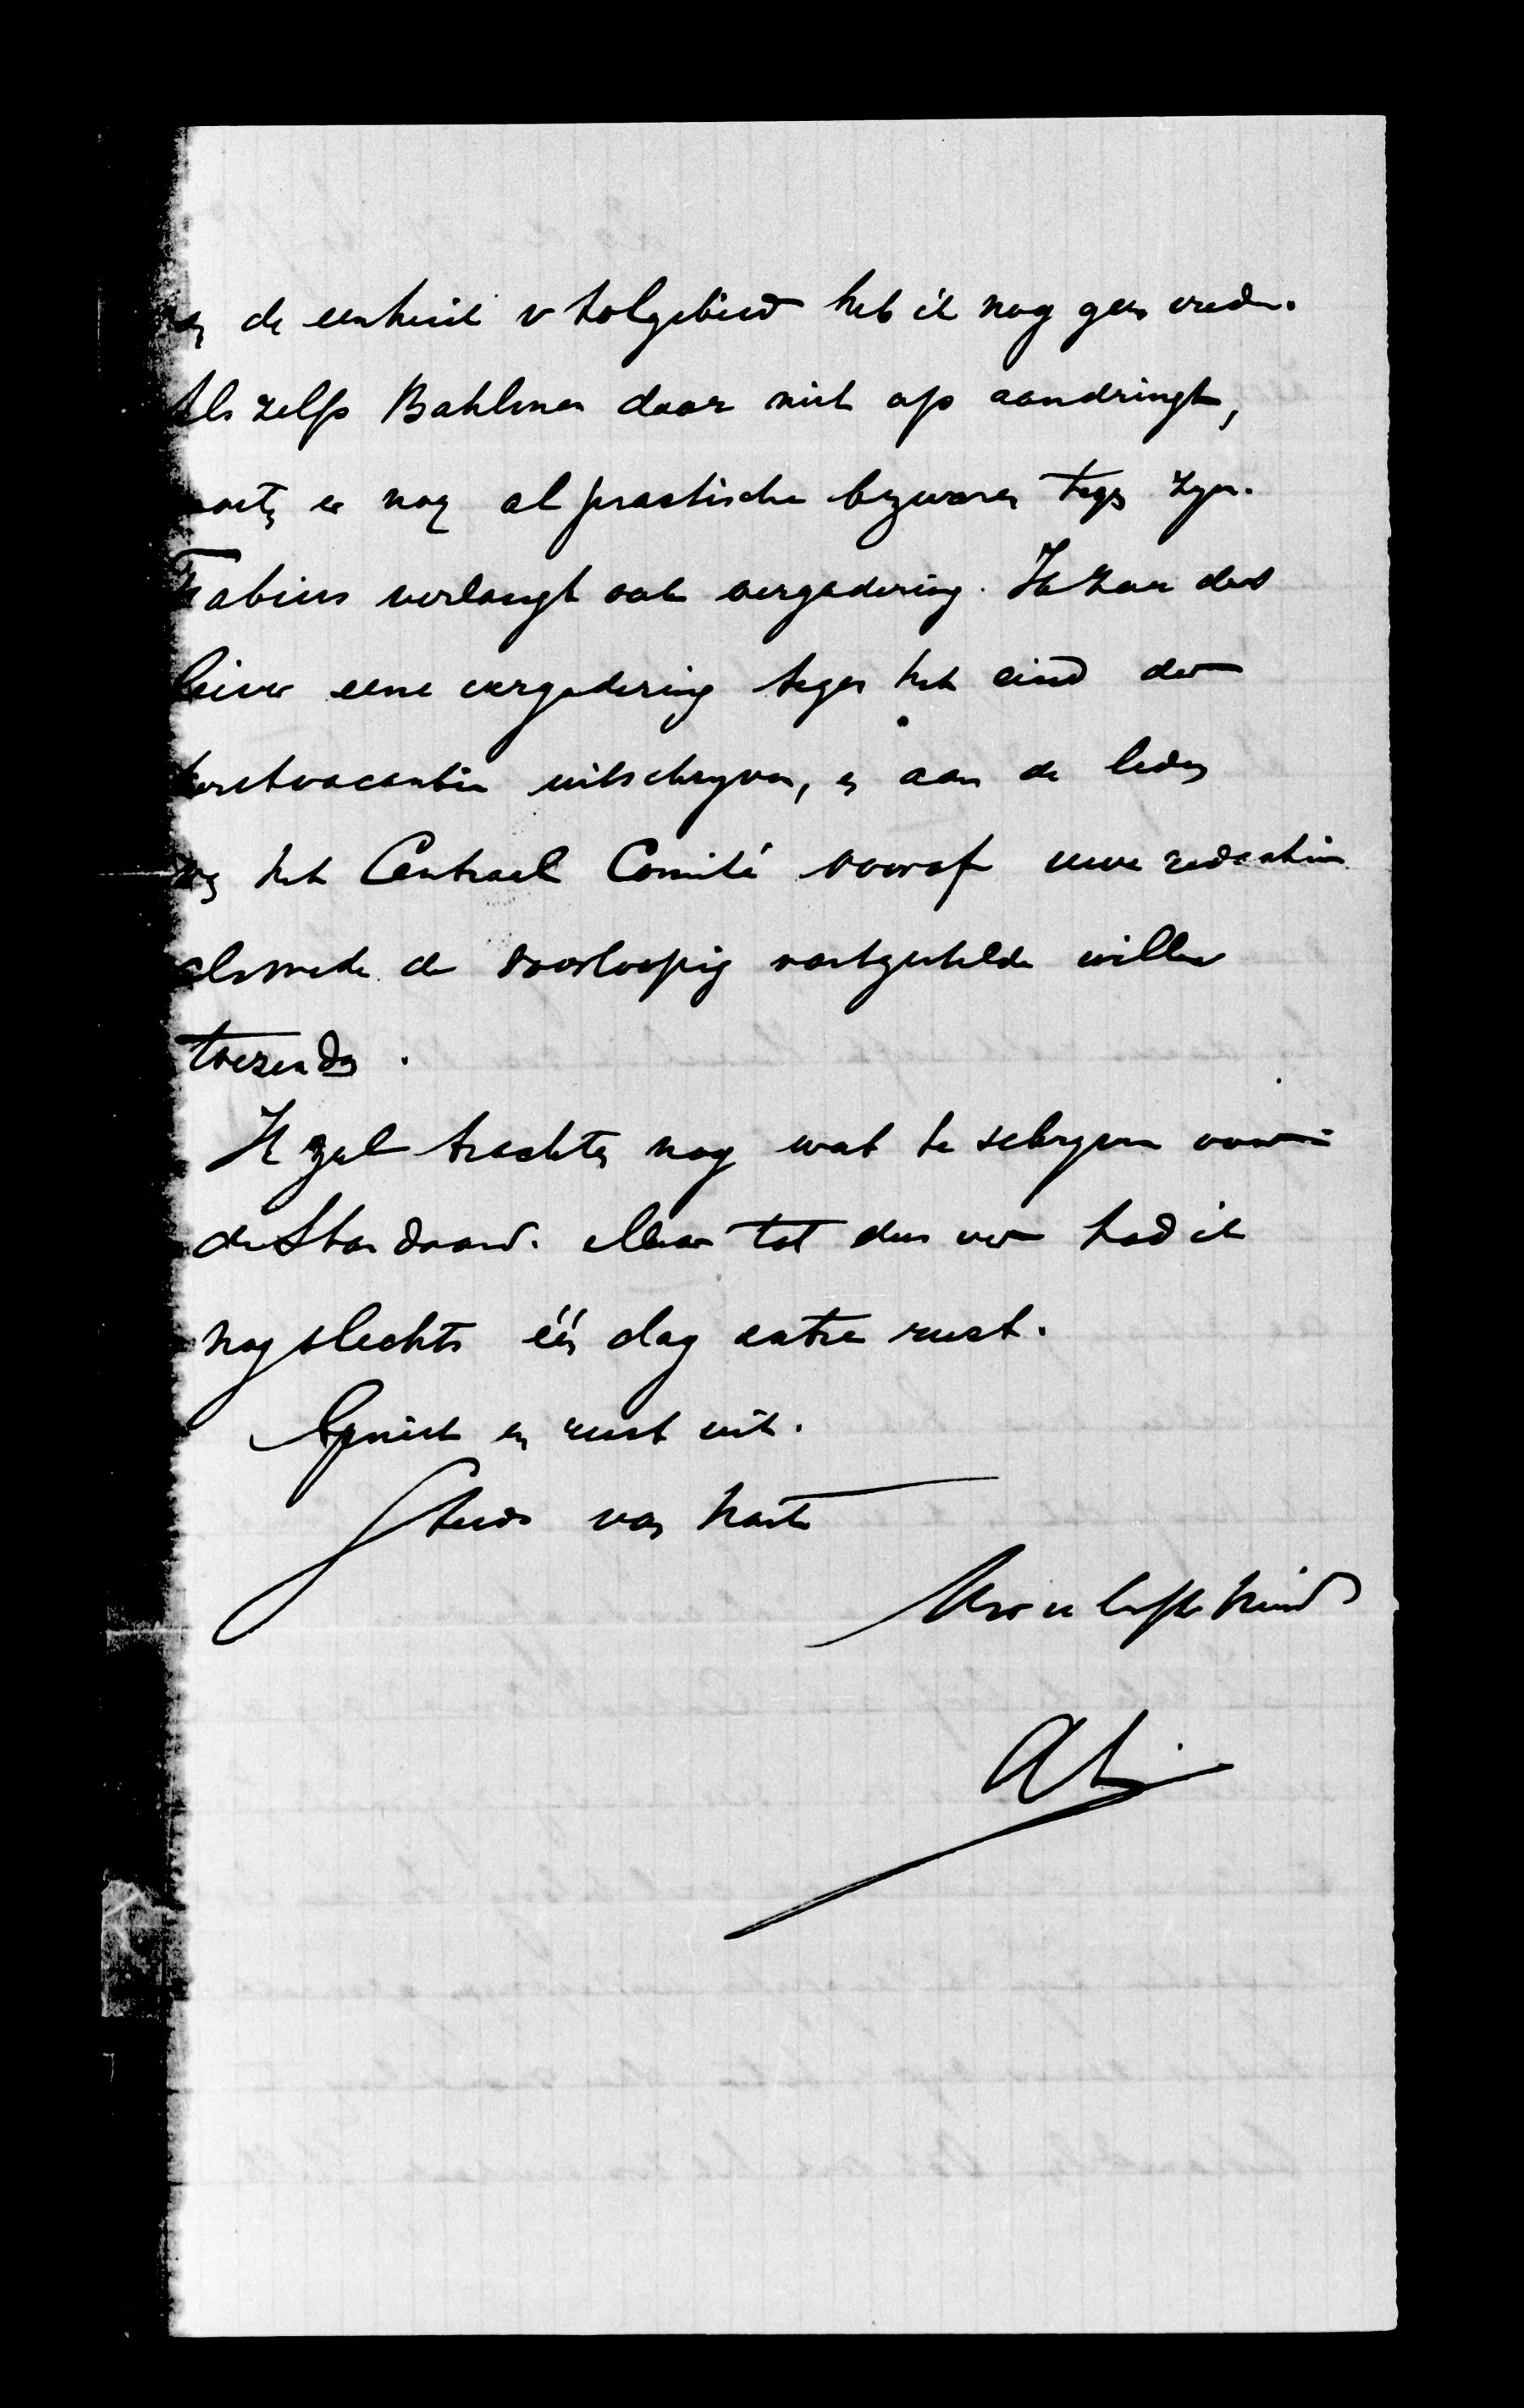 en de eenheid v tolgebied heb ik nog geen vrede.
Als zelfs Bahlman daar niet op aandringt,
moeten er nog al practische bezwaren tegen zyn.
Fabius verlangt ook vergadering. Ik zou dus
liever eene vergadering tegen het eind der
kerstvacantie uitschryven, en aan de leden
van het Centraal Comité vooraf uwe redactie
alsmede de voorloopig vastgestelde willen
toezenden.
Ik zal trachten nog wat te schryven voor
de Standaard. Maar tot dus ver had ik
nog slechts één dag extra rust.
Geniet en rust uit.
Steeds van harte
Uw